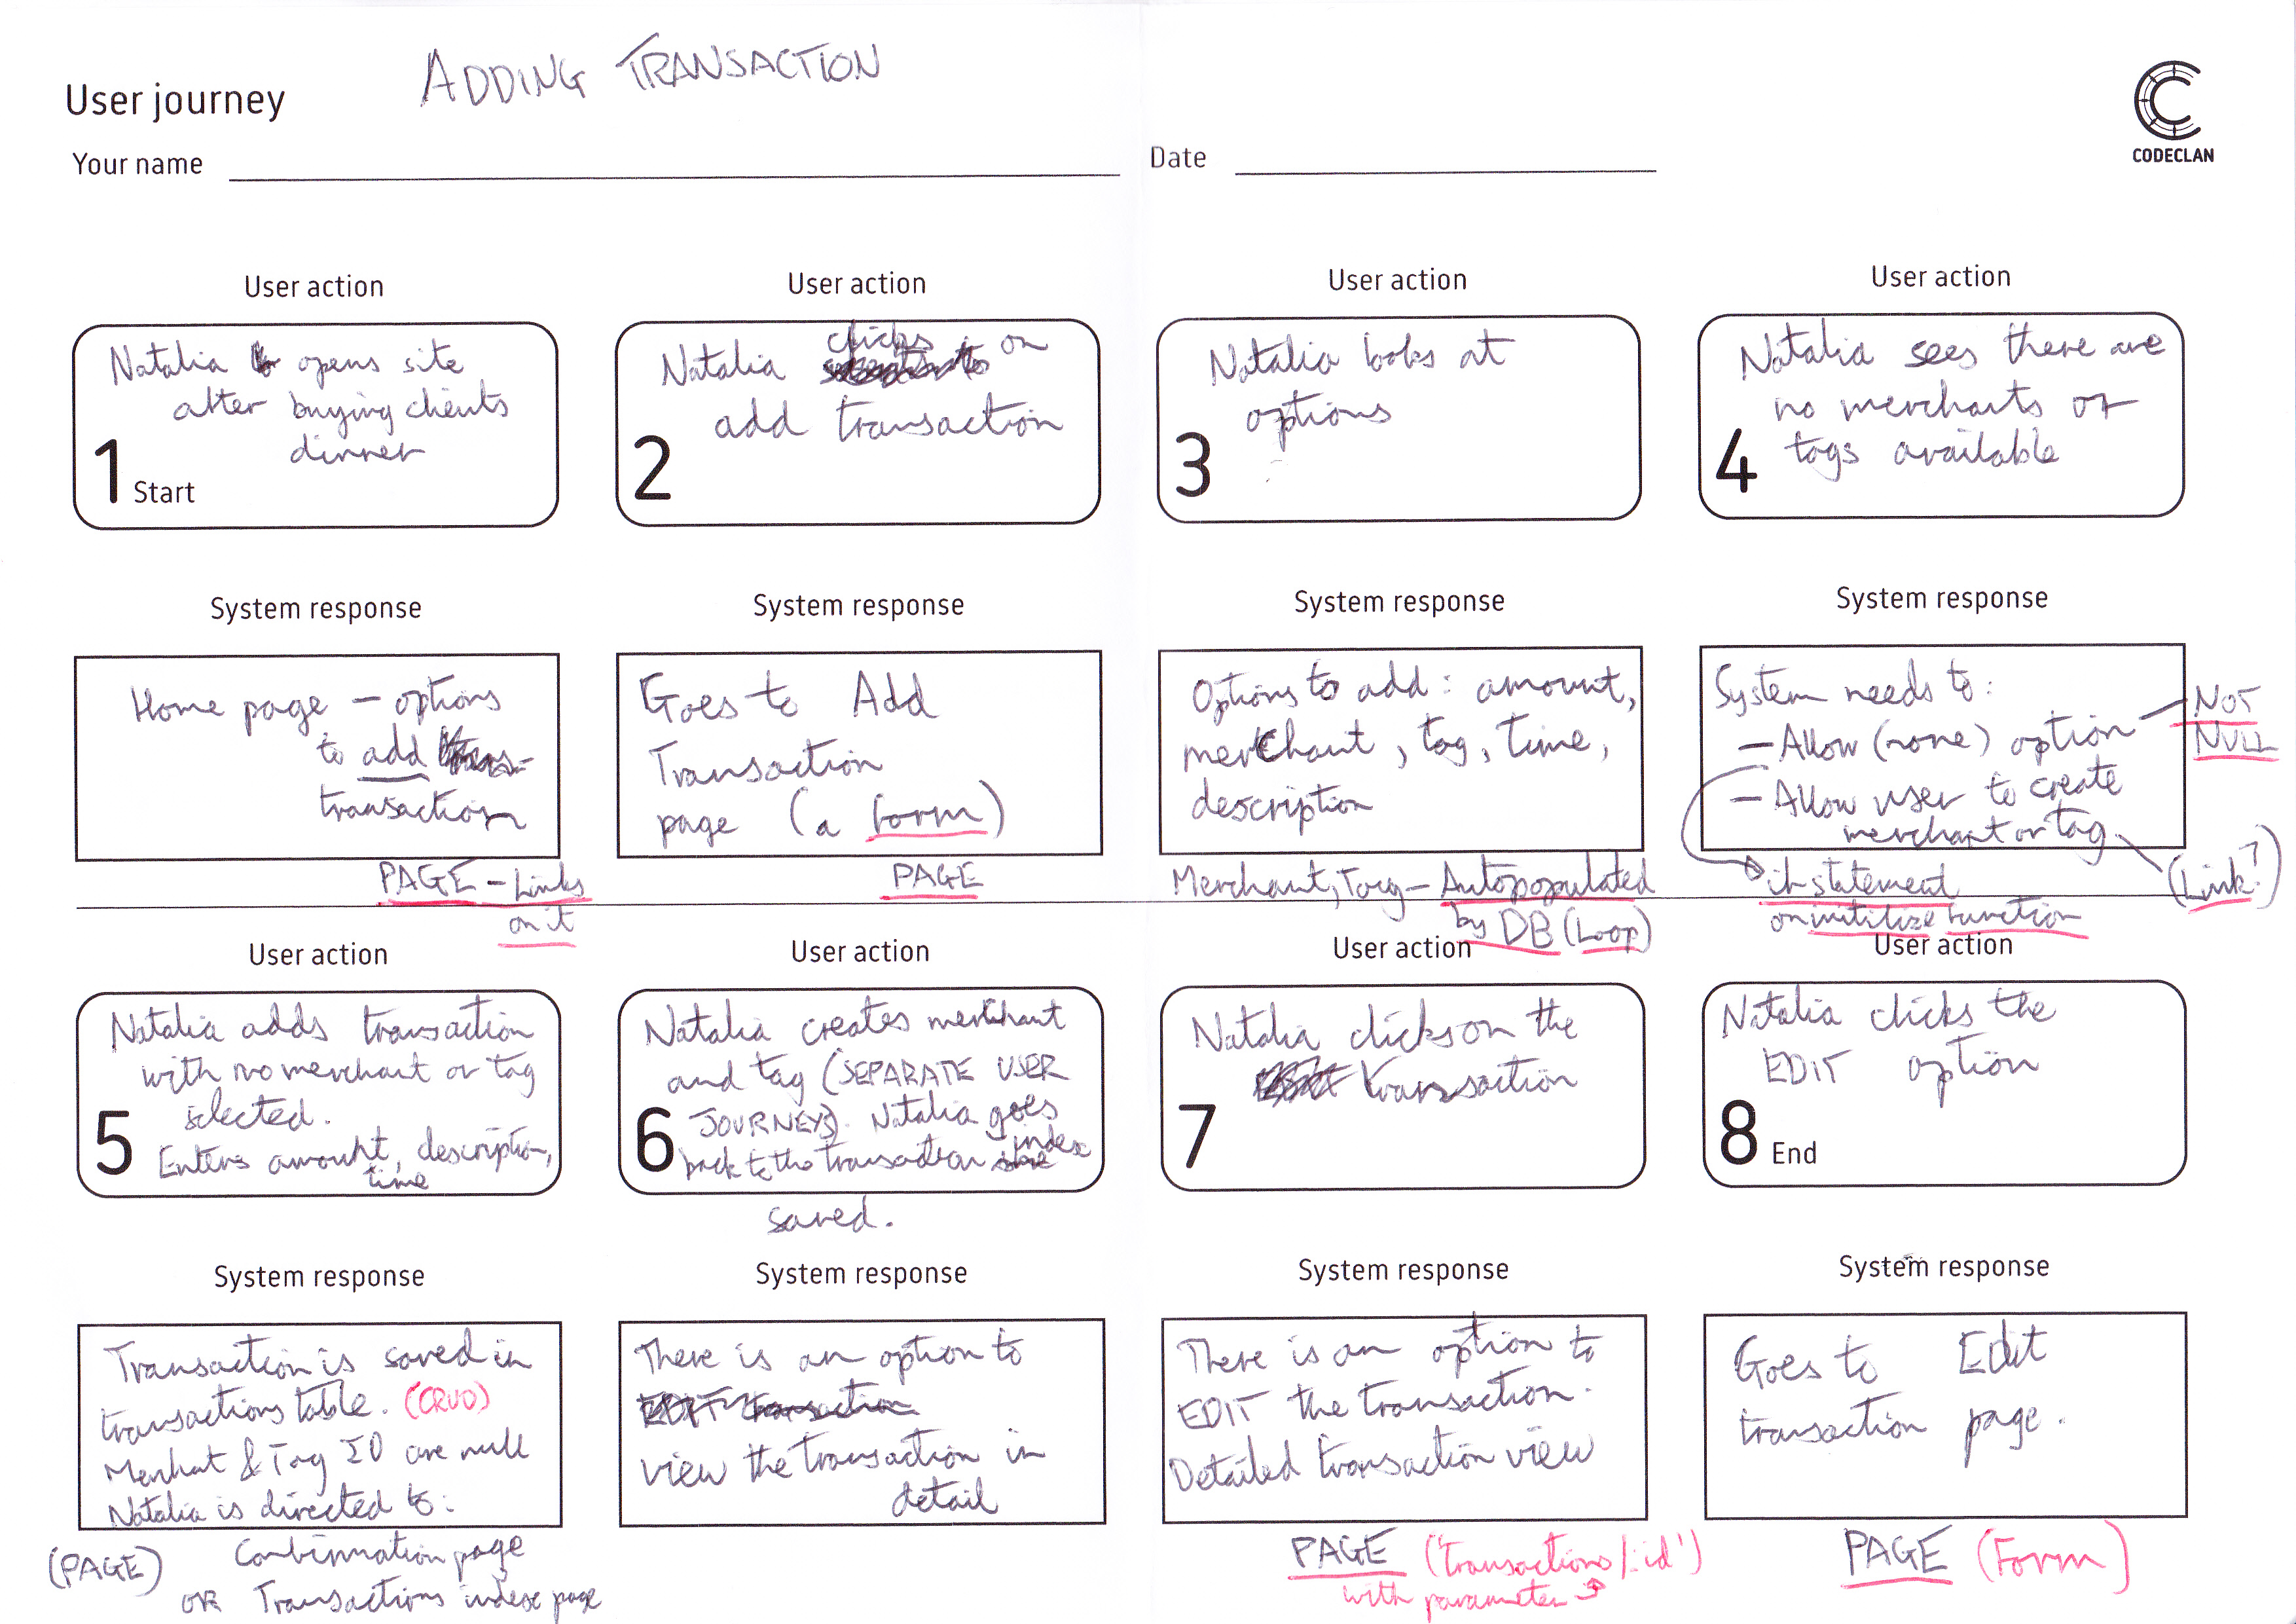 User journey
ADDING TRANSACTION
CODECLAN
Your name
Date
User action
Natalia opens site
after buying clients
dinner
1 Start
User action
Natalia clicks on
add transaction
2
User action
Natalia looks at
options
3
User action
Natalia sees there are
no merchants or
tags available
4
System response
Home page – options
to add
transaction
PAGE – Links
on it
System response
Goes to Add
Transaction
page (a form)
PAGE
System response
Options to add: amount,
merchant, tag, time,
description
Merchant, Tag – Autopopulated
by DB (Loop)
System response
System needs to:
– Allow (none) option
NOT
NULL
– Allow user to create
merchant or tag
(Link?)
if statement
on initilize function
User action
Natalia adds transaction
with no merchant or tag
selected.
Enters amount, description,
time
5
User action
Natalia creates merchant
and tag (SEPARATE USER
JOURNEYS). Natalia goes
back to the transaction index
saved.
6
User action
Natalia clicks on the
transaction
7
User action
Natalia clicks the
EDIT option
8 End
System response
Transaction is saved in
transactions table. (CRUD)
Merchat & Tag ID are null
Natalia is directed to:
(PAGE) Confirmation page
OR Transactions index page
System response
There is an option to
EDIT transaction
view the transaction in
detail
System response
There is an option to
EDIT the transaction.
Detailed transaction view
PAGE ('transactions/:id')
with parameter
System response
Goes to Edit
transaction page.
PAGE (Form)